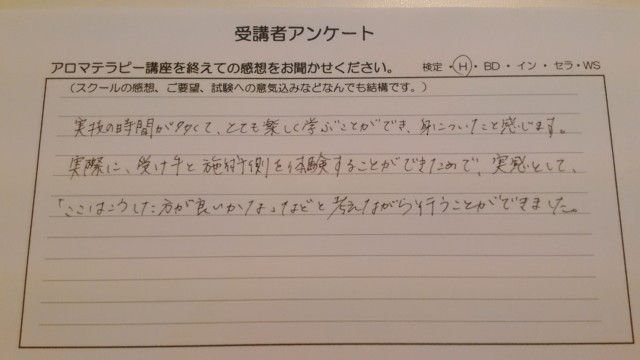 受講者アンケート
アロマテラピー講座を終えての感想をお聞かせください。 検定・H・BD・イン・セラ・WS
(スクールの感想、ご要望、試験への意気込みなどなんでも結構です。)
実技の時間が多くて、とても楽しく学ぶことができ、身についたと感じます。
実際に、受け手と施術側を体験することができたので、実感として、
「ここはこうした方が良いかな」などと考えながら行うことができました。